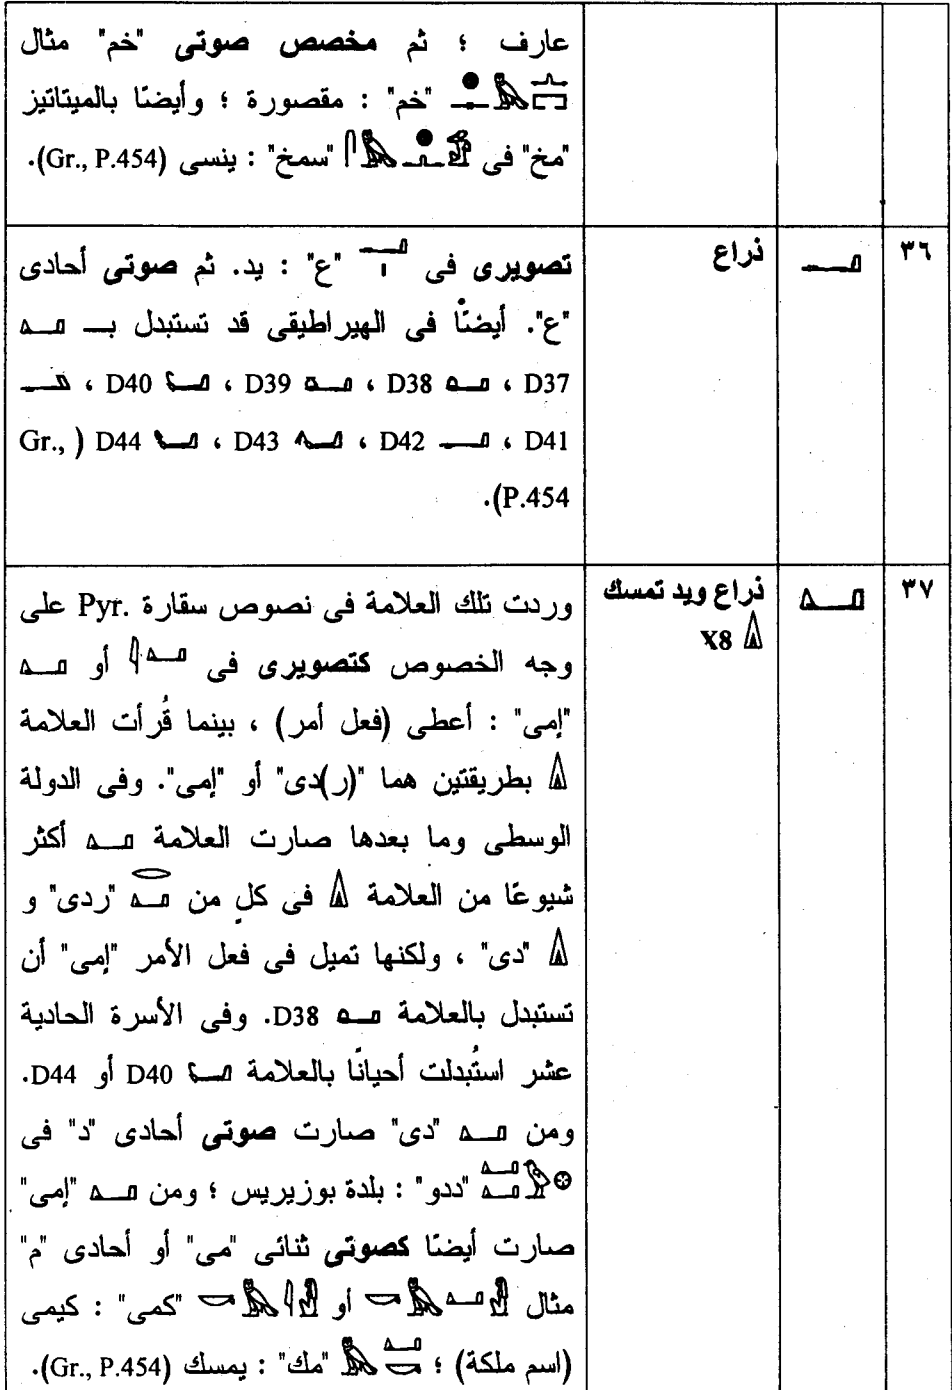 عارف ؛ ثم مخصص صوتى "خم" مثال
𓐍𓅓𓉐 "خم" : مقصورة ؛ وأيضًا بالميتاتيز
"مخ" فى "سمخ" : ينسى (Gr., P.454).
٣٦ 𓂝 ذراع تصويرى فى 𓂝𓏤 "ع" : يد. ثم صوتى أحادى
"ع". أيضًا فى الهيراطيقى قد تستبدل بـ 𓂞
D37 ، 𓂟 D38 ، 𓂠 D39 ، 𓂡 D40 ، 𓂢
D41 ، 𓂣 D42 ، 𓂤 D43 ، 𓂥 D44 (Gr.,
P.454).
٣٧ 𓂞 ذراع ويد تمسك وردت تلك العلامة فى نصوص سقارة Pyr. على
𓏙 X8 وجه الخصوص كتصويرى فى 𓇋𓂞 أو 𓂞
"إمى" : أعطى (فعل أمر) ، بينما قُرأت العلامة
𓏙 بطريقتين هما "(ر)دى" أو "إمى". وفى الدولة
الوسطى وما بعدها صارت العلامة 𓂞 أكثر
شيوعًا من العلامة 𓏙 فى كلٍ من 𓂋𓂞 "ردى" و
𓏙 "دى" ، ولكنها تميل فى فعل الأمر "إمى" أن
تستبدل بالعلامة 𓂟 D38. وفى الأسرة الحادية
عشر استُبدلت أحيانًا بالعلامة 𓂡 D40 أو D44.
ومن 𓂞 "دى" صارت صوتى أحادى "د" فى
𓂞𓂞𓅱𓊖 "ددو" : بلدة بوزيريس ؛ ومن 𓂞 "إمى"
صارت أيضًا كصوتى ثنائى "مى" أو أحادى "م"
مثال 𓎡𓅓𓂞𓁐 أو 𓎡𓅓𓇋𓁐 "كمى" : كيمى
(اسم ملكة) ؛ 𓅓𓂞𓎡 "مك" : يمسك (Gr., P.454).